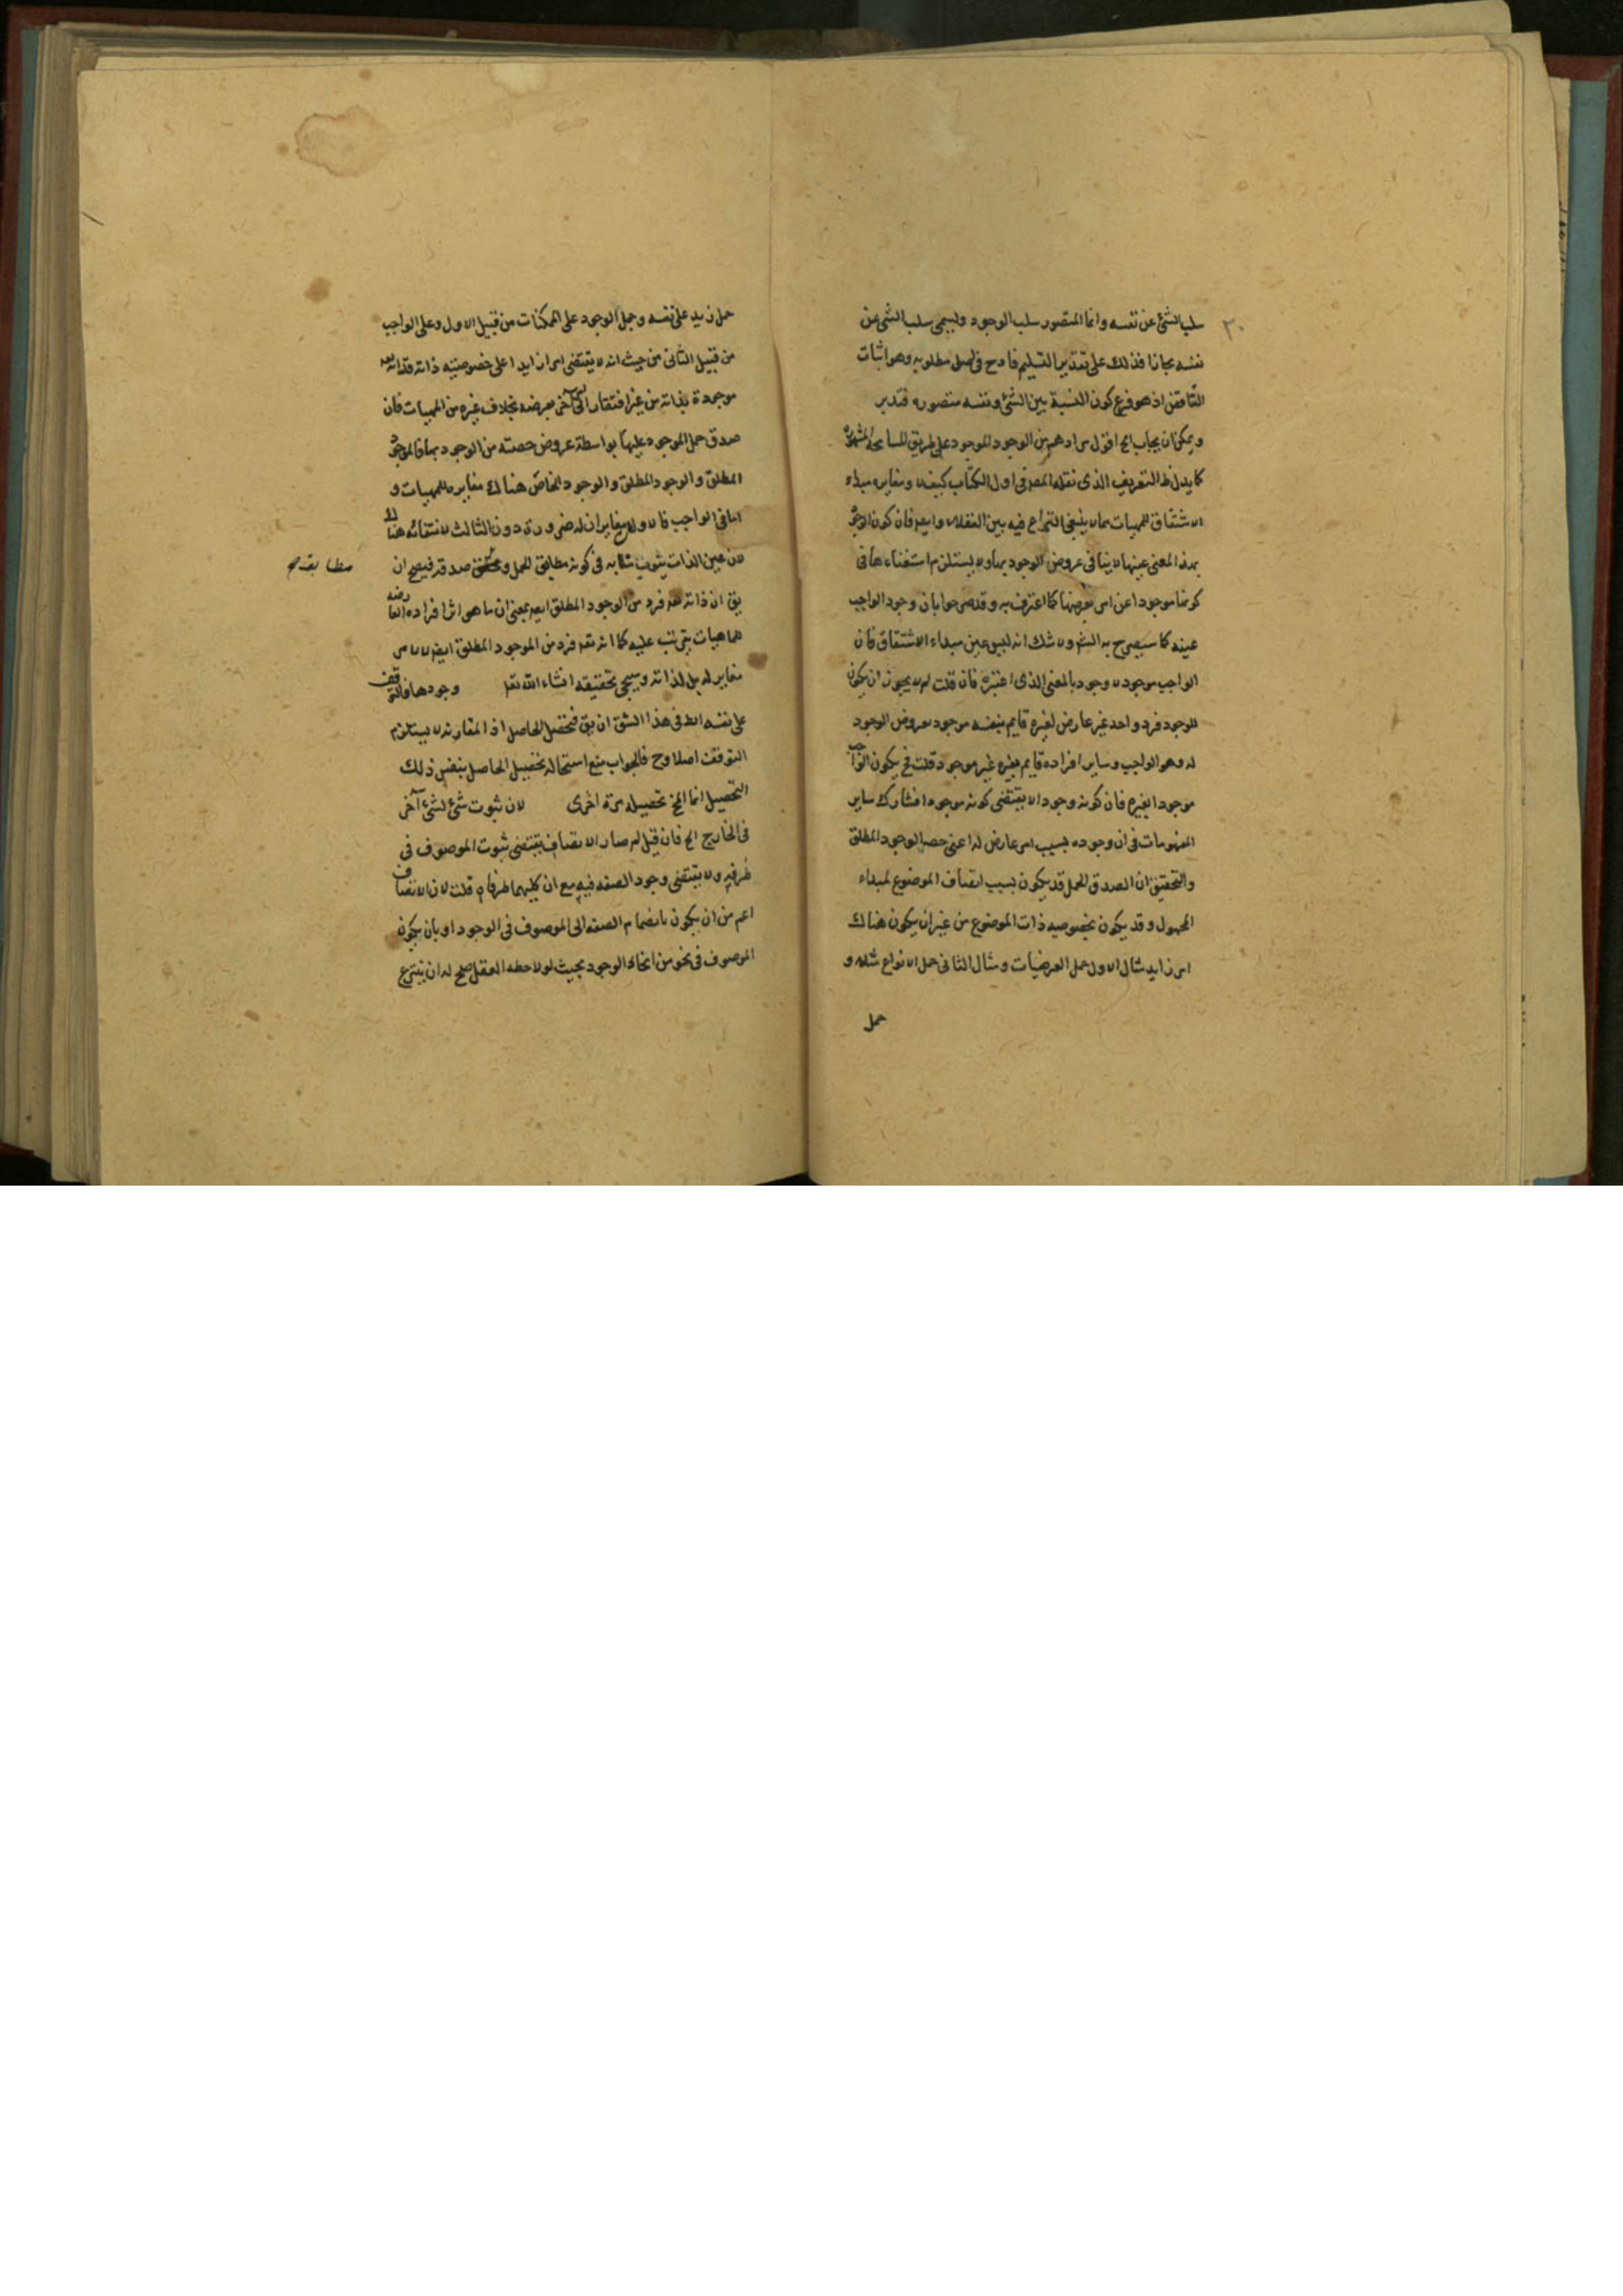 ٢٠
سلب الشئ عن نفسه وانما المتصور سلب الوجود ويسمى سلب الشئ عن
نفسه مجازا فذلك على تقدير التسليم قادح فى اصل مطلوبه وهو اثبات
التناقض اذ هو فرع كون النسبة بين الشئ ونفسه متصوره فتدبر
ويمكن ان يجاب الخ اقول مرادهم من الوجود الموجود على طريق المسامحة المشهورة
كما يدل التعريف الذى نقله المصر فى اول الكتاب كيف لا ومغايره مبداء
الاشتقاق للمهيات مما لا ينبغى النزاع فيه بين العقلاء وايضا فان كون الوجود
بهذا المعنى عينها لا ينافى عروض الوجود بها ولا يستلزم استغناءها فى
كونها موجودا عن امر يعرضها كما اعترف به وقد صرحوا بان وجود الواجب
عينه كما سيصرح به الش ولا شك انه ليس عين مبداء الاشتقاق فان
الواجب موجود لا وجود بالمعنى الذى اعتبره فان قلت لم لا يجوز ان يكون
للوجود فرد واحد غير عارض لغيره قايم بنفسه موجود معروض الوجود
له وهو الواجب وساير افراده قايم بغيره غير موجود قلت فح يكون الواجب
موجودا بغيره فان كونه وجودا لا يقتضى كونه موجودا فشارك ساير
المفهومات فى ان وجوده بسبب امر عارض له اعنى حصه الوجود المطلق
والتحقيق ان الصدق الحمل قد يكون بسبب اتصاف الموضوع لمبداء
المحمول وقد يكون بخصوصيه ذات الموضوع من غير ان يكون هناك
امر زايد مثال الاول حمل العرضيات ومثال الثانى حمل الانواع مثلا و
حمل
حمل زيد على نفسه وحمل الوجود على الممكنات من قبيل الاول وعلى الواجب
من قبيل الثانى من حيث انه لا يقتضى امرا زايدا على خصوصيته ذاته فذاته
موجودة بذاته من غير افتقار الى امر آخر يعرضه بخلاف غيره من المهيات فان
صدق حمل الموجود عليها بواسطة عروض حصته من الوجود بها فالموجود
المطلق والوجود المطلق والوجود الخاص هناك مغايره للمهيات و
اما فى الواجب فالاولان مغايران له ضرورة دون الثالث لانتفائه هنا
لان عين الذات ينوب منابه فى كونه مطابق للحمل و صدقه فيصح ان
مطابقه
يق ان ذاته تعه فرد من الوجود المطلق ايضا بمعنى ان ما هو اثر افراده العارضه
للماهيات يترتب عليه كما انه تعه فرد من الموجود المطلق ايضا لا لامر
مغاير له بل لذاته وسيجى تحقيقه انشاء الله تعا وجودها فالتوقف
على نفسه الخ فى هذا الشق ان يق فتحصل الحاصل اذ المقارنه لا يستلزم
التوقف اصلا وح فالجواب منع استحاله تحصيل الحاصل بنفس ذلك
التحصيل انما المح تحصيله مرة اخرى لان ثبوت شئ لشئ آخر
فى الخارج الخ فان قيل لم صار الاتصاف يقتضى ثبوت الموصوف فى
ظرفه ولا يقتضى وجود الصفه فيه مع ان كليهما طرفاه قلت لان الاتصاف
اعم من ان يكون بانضمام الصفه الى الموصوف فى الوجود او بان يكون
الموصوف فى نحو من انحاء الوجود بحيث لو لاحظه العقل صح له ان ينتزع